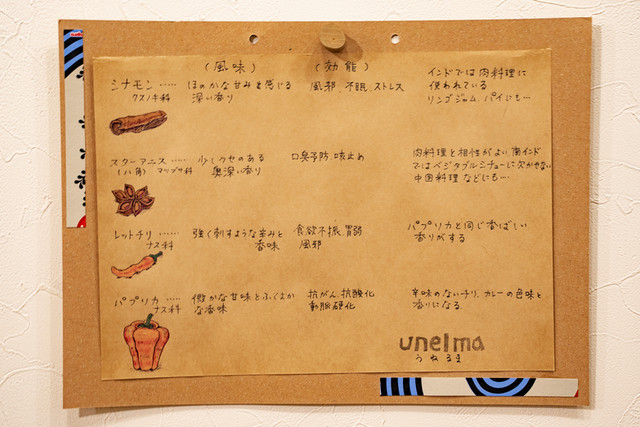 (風味) (効能)
シナモン…… ほのかな甘みを感じる 風邪、不眠、ストレス インドでは肉料理に
クスノキ科 深い香り 使われている
リンゴジャム、パイにも…
スターアニス…… 少しクセのある 口臭予防、咳止め 肉料理と相性がよい、南インド
(八角) マツブサ科 奥深い香り ではベジタブルシチューに欠かせない
中国料理などにも…
レットチリ…… 強く刺すような辛みと 食欲不振、胃弱 パプリカと同じ香ばしい
ナス科 香味 風邪 香りがする
パプリカ…… 微かな甘味とふくよか 抗がん、抗酸化 辛味のないチリ、カレーの色味と
ナス科 な香味 動脈硬化 香りになる
unelma
うねるま